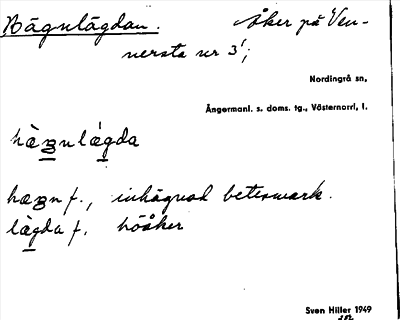 Hägnlägdan. Åker på Ven-
nersta nr 3¹;
Nordingrå sn,
Ångermanl. s. doms. tg., Västernorrl. l.
hæ̀gnlǽgda
hægn f., inhägnad betesmark.
lægda f. höåker
Sven Hiller 1949